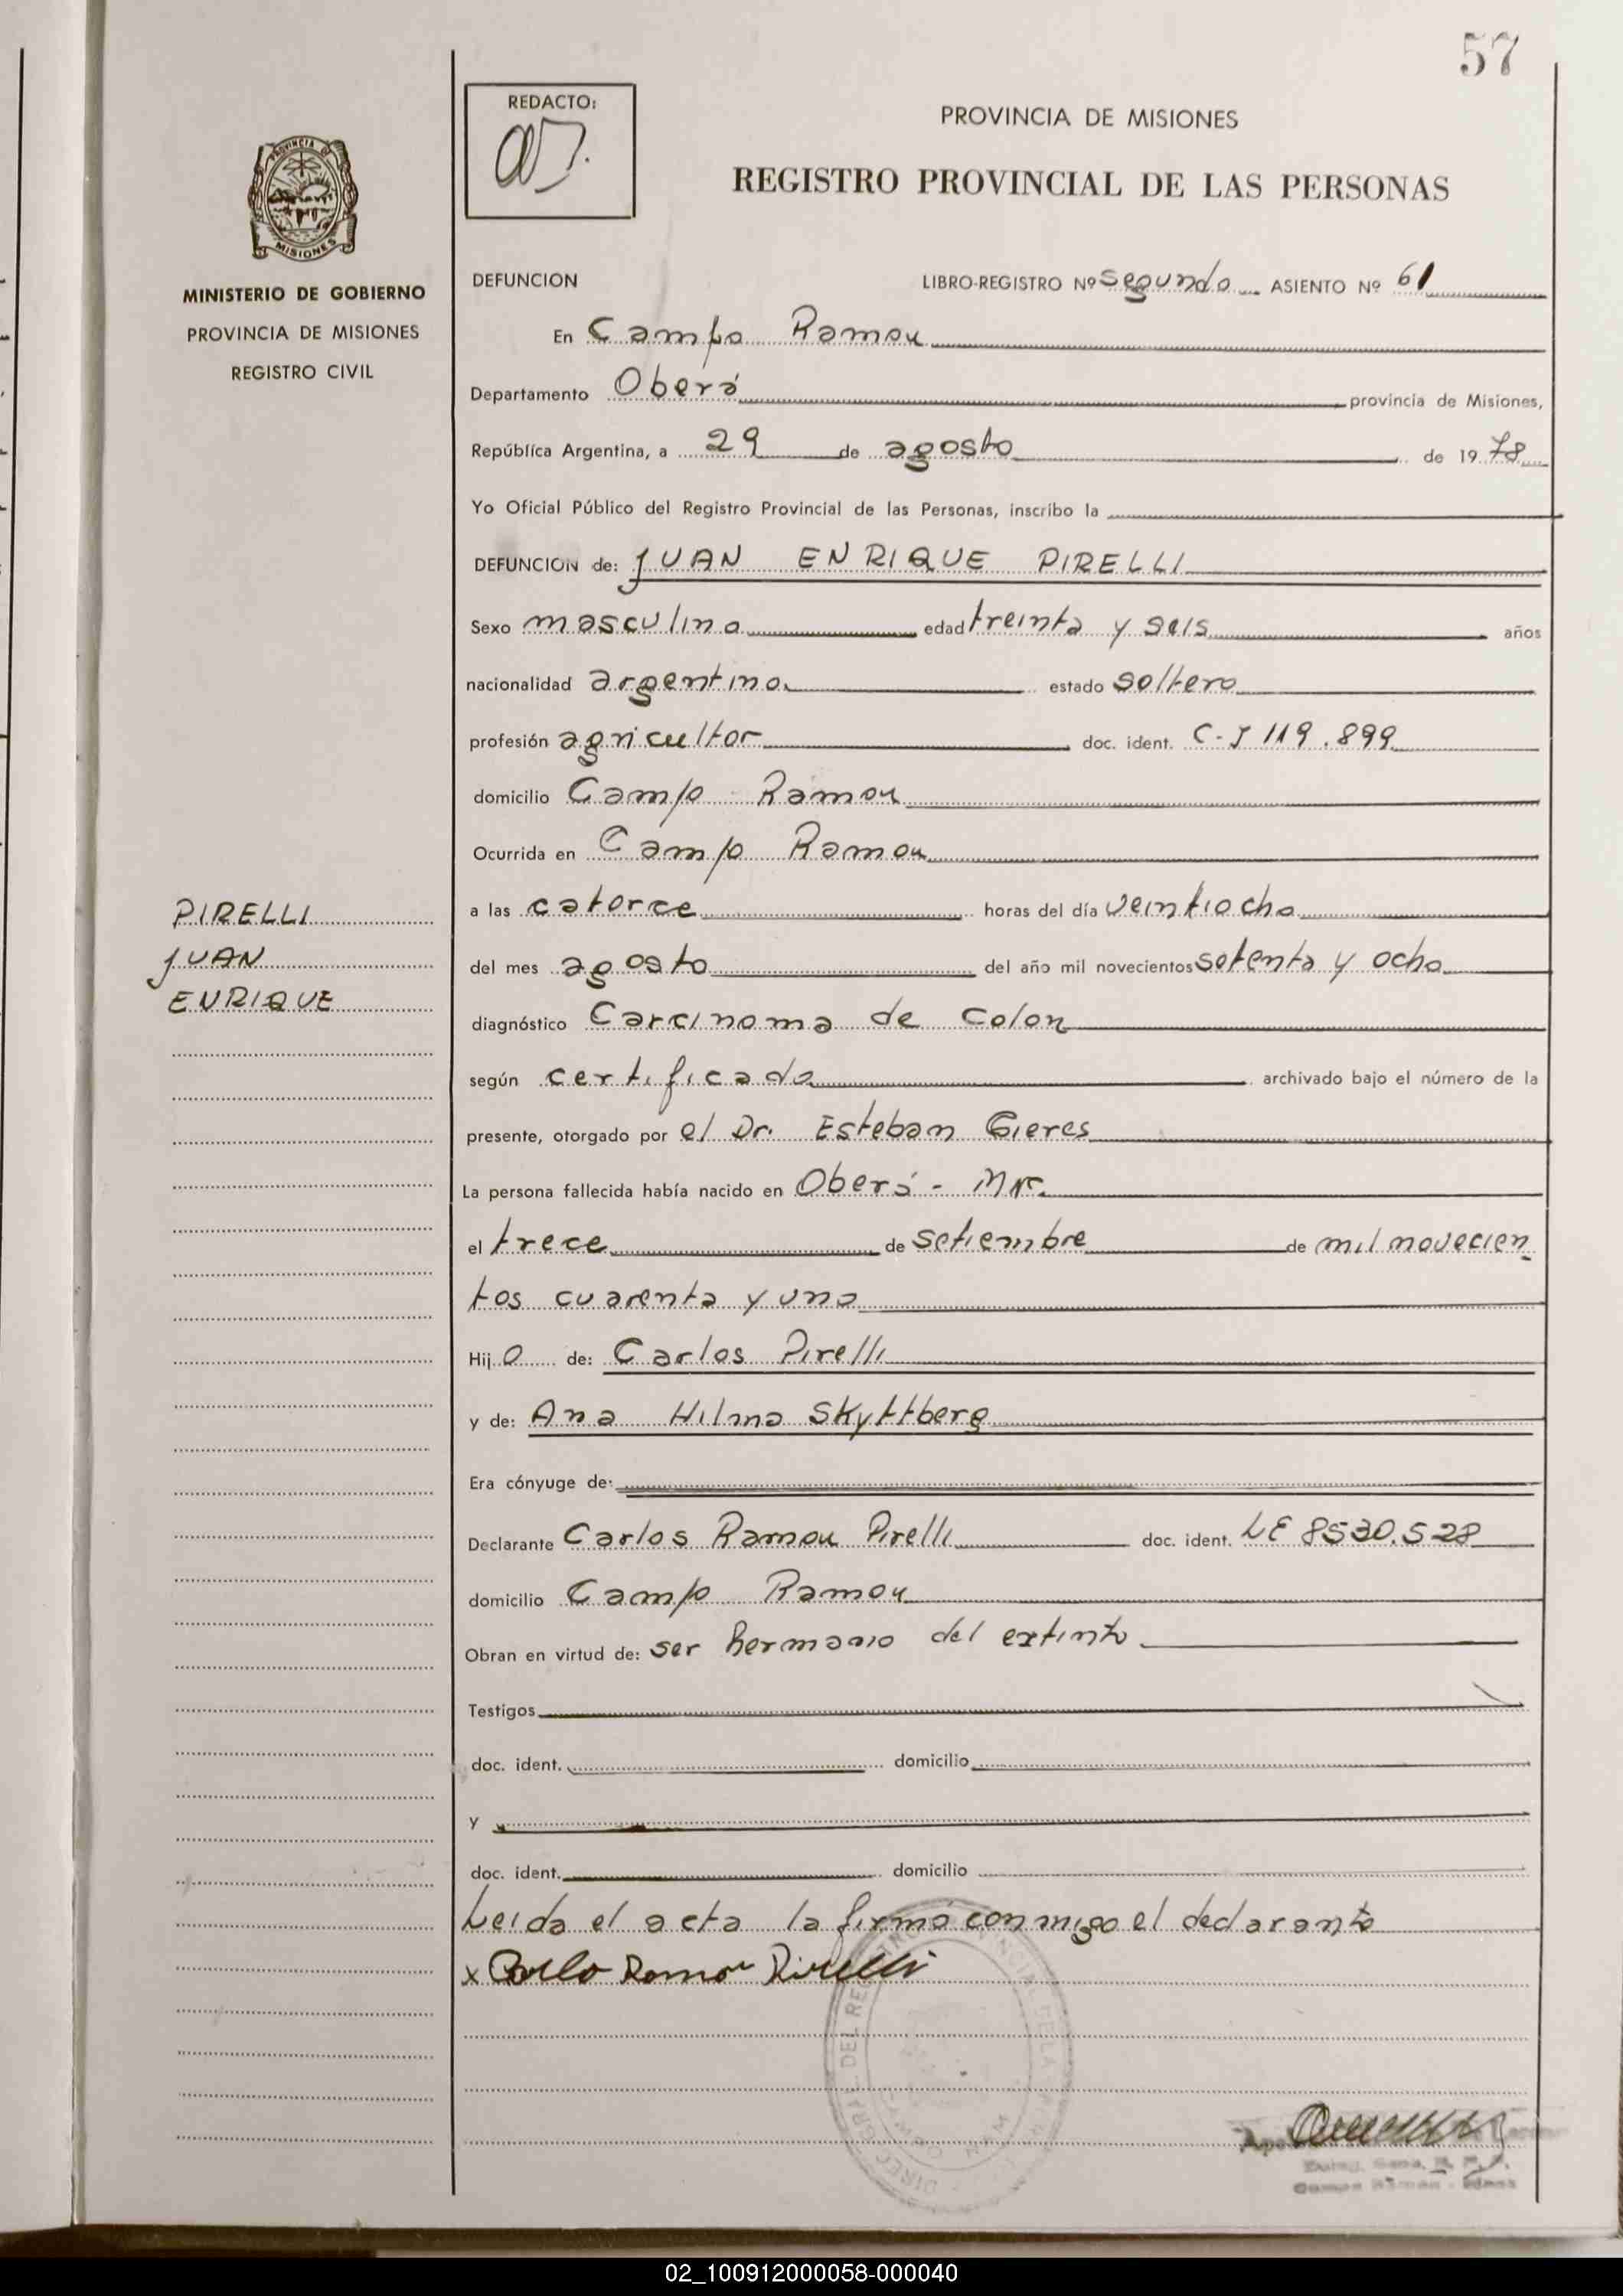 57
REDACTO:
PROVINCIA DE MISIONES
REGISTRO PROVINCIAL DE LAS PERSONAS
PROVINCIA DE
MISIONES
MINISTERIO DE GOBIERNO
PROVINCIA DE MISIONES
REGISTRO CIVIL
DEFUNCION LIBRO-REGISTRO Nº segundo ASIENTO Nº 61
En Campo Ramon
Departamento Oberá provincia de Misiones,
República Argentina, a 29 de agosto de 1978
Yo Oficial Público del Registro Provincial de las Personas, inscribo la
DEFUNCION de: JUAN ENRIQUE PIRELLI
Sexo masculino edad treinta y seis años
nacionalidad argentino estado soltero
profesión agricultor doc. ident. C.I 119.899
domicilio Campo Ramon
Ocurrida en Campo Ramon
PIRELLI
JUAN
ENRIQUE
a las catorce horas del día veintiocho
del mes agosto del año mil novecientos setenta y ocho
diagnóstico Carcinoma de Colon
según certificado archivado bajo el número de la
presente, otorgado por el Dr. Esteban Gieres
La persona fallecida había nacido en Oberá -
el trece de setiembre de mil novecien
tos cuarenta y uno
Hij o de: Carlos Pirelli
y de: Ana Hilma Skyttberg
Era cónyuge de:
Declarante Carlos Ramon Pirelli doc. ident. LE 8530.528
domicilio Campo Ramon
Obran en virtud de: ser hermano del extinto
Testigos
doc. ident. domicilio
y
doc. ident. domicilio
Leida el acta la firmó conmigo el declarante
x Carlo Ramon Pirelli
02_100912000058-000040